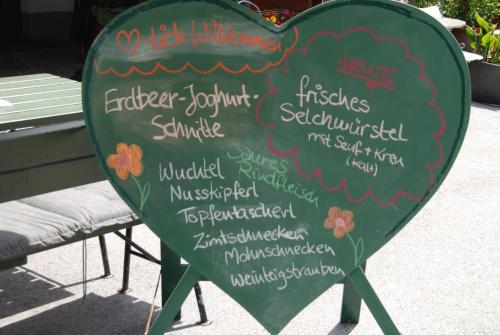 ♡-lich Willkommen
Erdbeer-Joghurt-
Schnitte
HEUTE
frisches
Selchwürstel
mit Senf + Kren
(kalt)
saures
Rindfleisch
Wuchtel
Nusskipferl
Topfentascherl
Zimtschnecken
Mohnschnecken
Weinteigstrauben